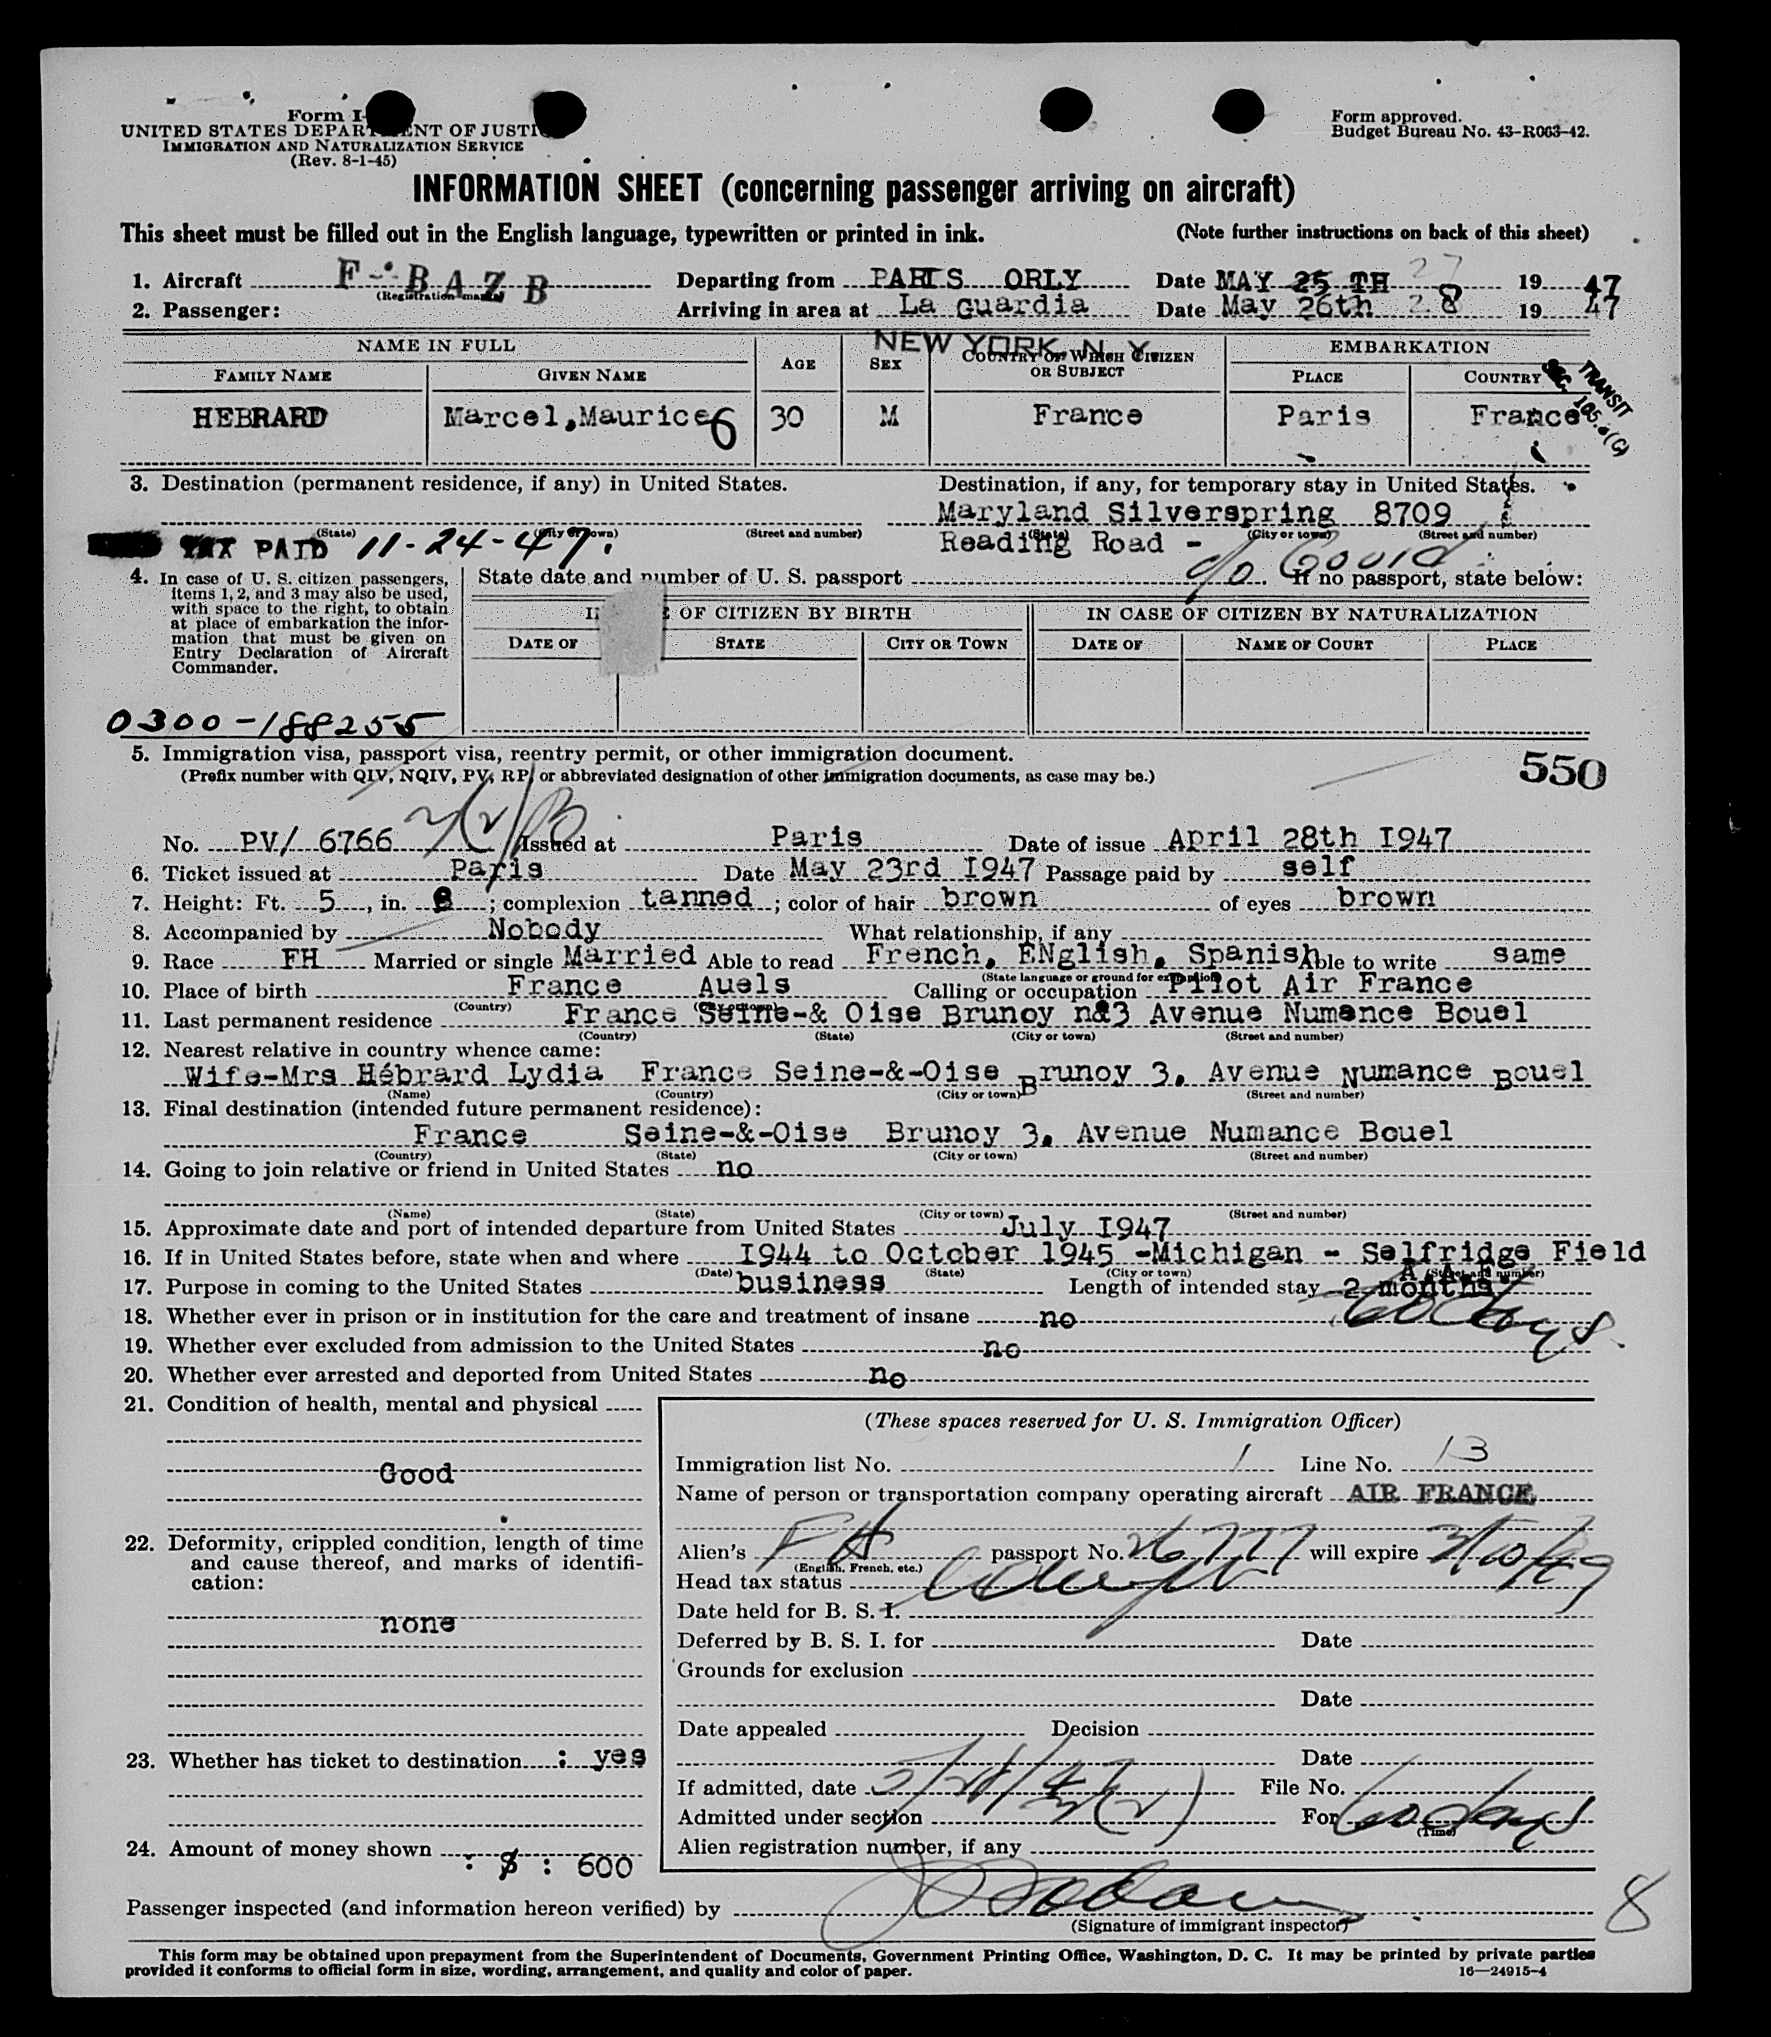 Form I-
UNITED STATES DEPARTMENT OF JUSTICE
IMMIGRATION AND NATURALIZATION SERVICE
(Rev. 8-1-45)
Form approved.
Budget Bureau No. 43-R063-42.
INFORMATION SHEET (concerning passenger arriving on aircraft)
This sheet must be filled out in the English language, typewritten or printed in ink. (Note further instructions on back of this sheet)
1. Aircraft F-BAZB Departing from PARIS ORLY Date MAY 25 TH 27 1947
(Registration marks)
2. Passenger: Arriving in area at La Guardia Date May 26th 28 1947
NEW YORK N. Y.
NAME IN FULL AGE SEX COUNTRY OF WHICH CITIZEN OR SUBJECT EMBARKATION
FAMILY NAME GIVEN NAME PLACE COUNTRY
TRANSIT
SEC. 105.(C)
HEBRARD Marcel,Maurice 6 30 M France Paris France
3. Destination (permanent residence, if any) in United States. Destination, if any, for temporary stay in United States.
Maryland Silverspring 8709
(State) (City or town) (Street and number) (State) (City or town) (Street and number)
TAX PAID 11-24-47. Reading Road - c/o Gould
4. In case of U. S. citizen passengers, items 1, 2, and 3 may also be used, with space to the right, to obtain at place of embarkation the information that must be given on Entry Declaration of Aircraft Commander.
State date and number of U. S. passport If no passport, state below:
OF CITIZEN BY BIRTH IN CASE OF CITIZEN BY NATURALIZATION
DATE OF STATE CITY OR TOWN DATE OF NAME OF COURT PLACE
0300-188255
5. Immigration visa, passport visa, reentry permit, or other immigration document.
(Prefix number with QIV, NQIV, PV, RP, or abbreviated designation of other immigration documents, as case may be.)
550
3(2)/B
No. PV/ 6766 Issued at Paris Date of issue April 28th I947
6. Ticket issued at Paris Date May 23rd I947 Passage paid by self
7. Height: Ft. 5, in. 8; complexion tanned; color of hair brown of eyes brown
8. Accompanied by Nobody What relationship, if any
9. Race FH Married or single Married Able to read French, ENglish, Spanish Able to write same
(State language or ground for exemption)
10. Place of birth France Auels Calling or occupation Pilot Air France
(Country) (City or town)
11. Last permanent residence France Seine-& Oise Brunoy n°3 Avenue Numance Bouel
(Country) (State) (City or town) (Street and number)
12. Nearest relative in country whence came:
Wife-Mrs Hébrard Lydia France Seine-&-Oise Brunoy 3, Avenue Numance Bouel
(Name) (Country) (City or town) (Street and number)
13. Final destination (intended future permanent residence):
France Seine-&-Oise Brunoy 3, Avenue Numance Bouel
(Country) (State) (City or town) (Street and number)
14. Going to join relative or friend in United States no
(Name) (State) (City or town) (Street and number)
15. Approximate date and port of intended departure from United States July I947
16. If in United States before, state when and where I944 to October 1945 -Michigan - Selfridge Field
(Date) (State) (City or town) (Street and number)
17. Purpose in coming to the United States business Length of intended stay 2 months
60 days
18. Whether ever in prison or in institution for the care and treatment of insane no
19. Whether ever excluded from admission to the United States no
20. Whether ever arrested and deported from United States no
21. Condition of health, mental and physical
Good
22. Deformity, crippled condition, length of time and cause thereof, and marks of identification:
none
23. Whether has ticket to destination : yes
24. Amount of money shown : $ : 600
(These spaces reserved for U. S. Immigration Officer)
Immigration list No. 1 Line No. 13
Name of person or transportation company operating aircraft AIR FRANCE
Alien's FH passport No. 26777 will expire 3/10/49
(English, French, etc.)
Head tax status
Date held for B. S. I.
Deferred by B. S. I. for Date
Grounds for exclusion
Date
Date appealed Decision
Date
If admitted, date 5/28/47 File No.
Admitted under section 3(2) For 60 days
(Time)
Alien registration number, if any
Passenger inspected (and information hereon verified) by
(Signature of immigrant inspector)
8
This form may be obtained upon prepayment from the Superintendent of Documents, Government Printing Office, Washington, D. C. It may be printed by private parties
provided it conforms to official form in size, wording, arrangement, and quality and color of paper.
16—24915-4